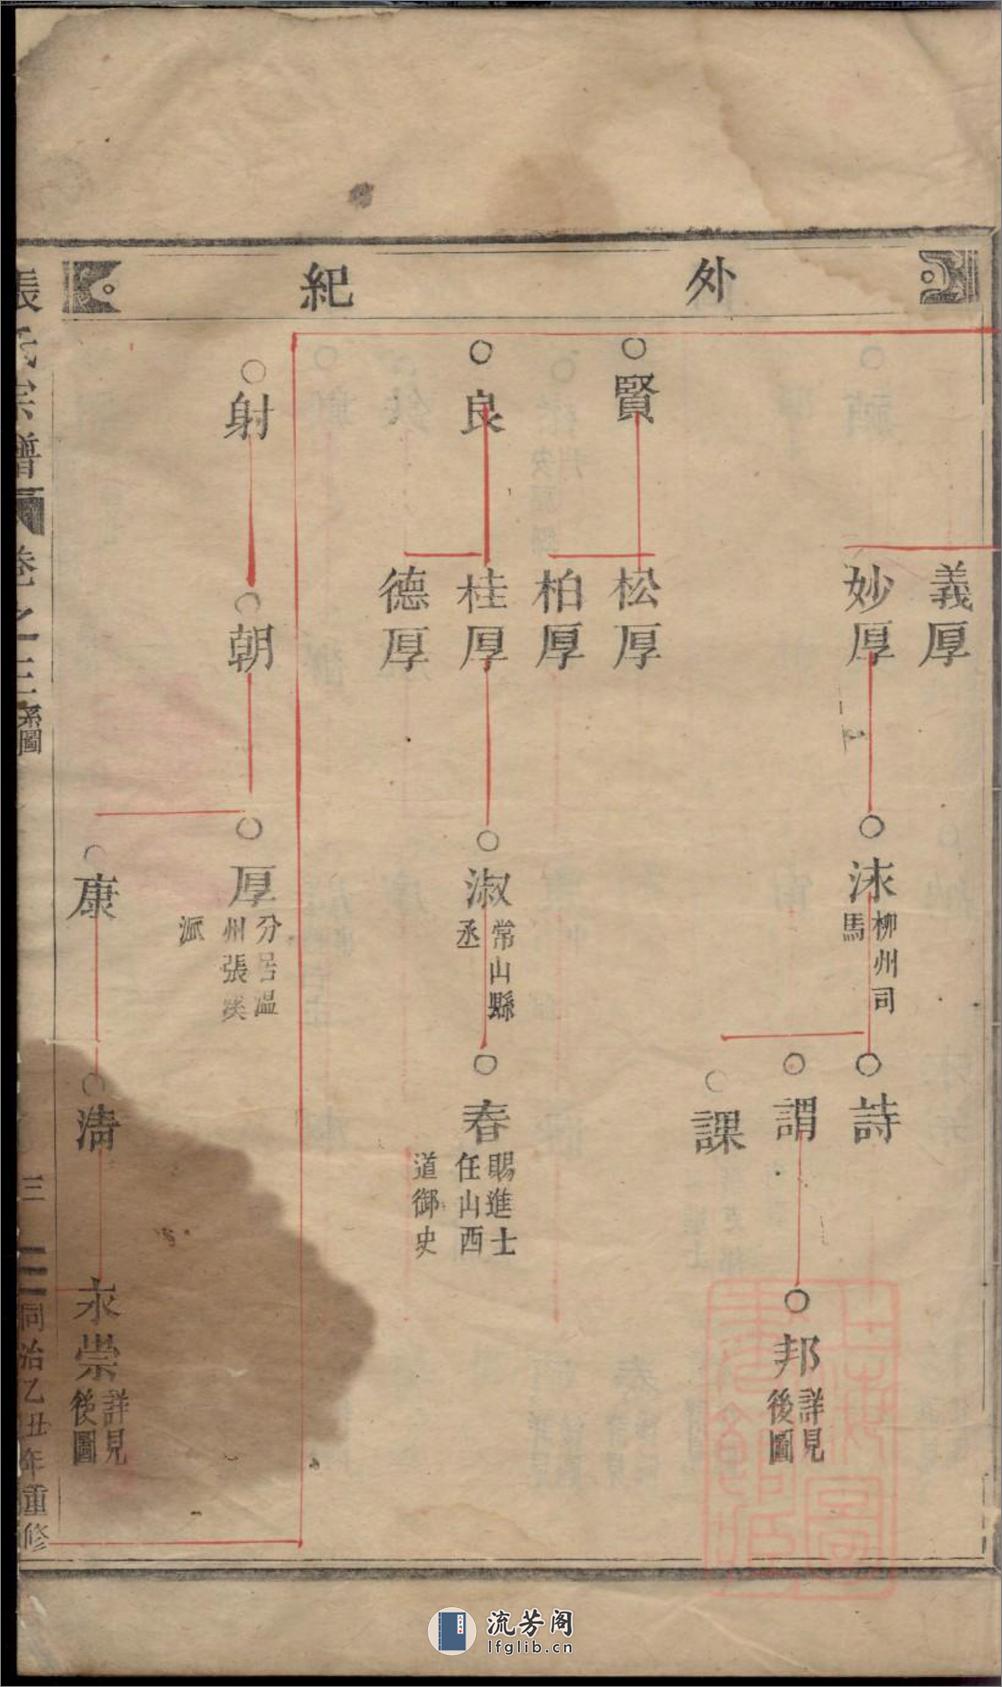 外紀
義厚
妙厚
洙
柳州司
馬
詩
謂
課
邦
詳見
後圖
賢
松厚
柏厚
良
桂厚
德厚
淑
常山縣
丞
春
賜進士
任山西
道御史
射
朝
厚
分居温
州張溪
派
康
清
永崇
詳見
後圖
張氏宗譜
卷之三
系圖
三
同治乙丑年重修
流芳阁
lfglib.cn